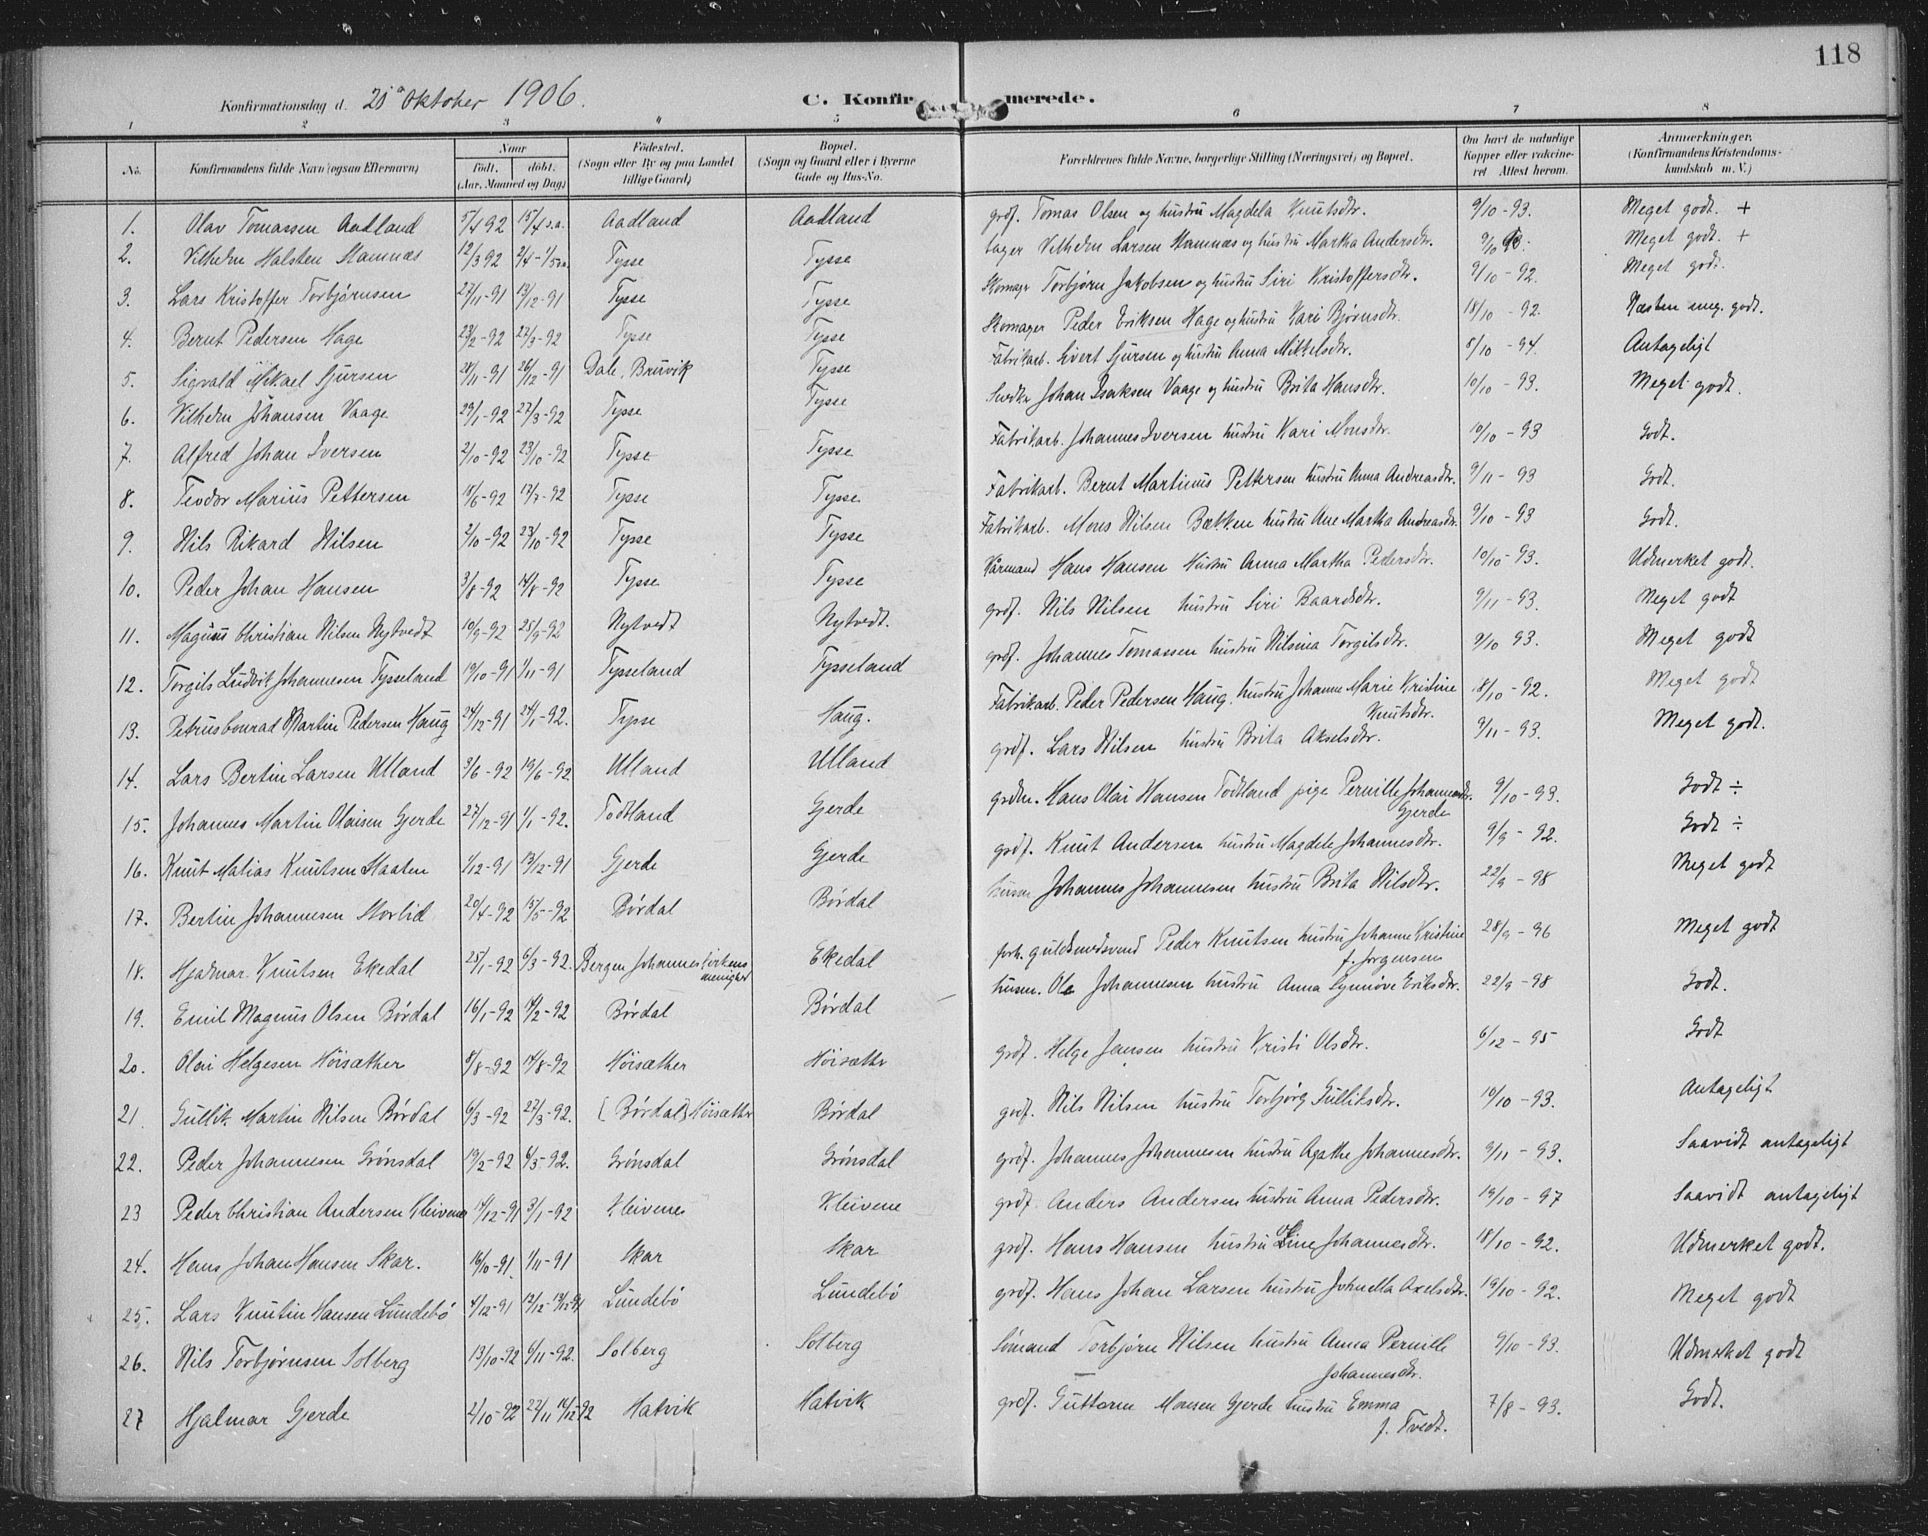 118
Konfirmationsdag d. 21de Oktober 1906.
C. Konfirmerede.
1 2 3 4 5 6 7 8
No. Konfirmandens fulde Navn (ogsaa Efternavn) Naar Født. døbt. (Aar, Maaned og Dag) Fødested. (Sogn eller By og paa Landet tillige Gaard) Bopæl. (Sogn og Gaard eller i Byerne Gade og Hus-No. Forældrenes fulde Navne, borgerlige Stilling (Næringsvei) og Bopæl. Om havt de naturlige Kopper eller vaccineret Attest herom. Anmerkninger. (Konfirmandens Kristendomskundskab m. V.)
1. Olav Tomassen Aadland 5/4 92 15/4 s.a. Aadland Aadland grdf. Tomas Olsen og hustru Magdela Knutsdtr. 9/10-93. Meget godt. +
2. Vilhelm Halsten Stamnæs 12/3 92 2/4-1/5 s.a. Tysse Tysse Vilhelm Larsen Stamnæs og hustru Martha Andersdtr. 9/10 93. Meget godt. +
3. Lars Kristoffer Torbjørnsen 27/11-91 13/12-91 Tysse Tysse Skomagr Torbjørn Jakobsen og hustru Siri Kristoffersdtr. 9/10-92. Meget godt.
4. Bernt Pedersen Hage 23/2-92 27/3-92 Tysse Tysse Skomager Peder Eriksen Hage og hustru Kari Bjørnsdtr. 18/10-92. Næsten meg. godt.
5. Sigvald Mikael Sjursen 28/11-91 26/12-91 Dale, Bruvik Tysse Fabrikarb. Sivert Sjursen og hustru Anna Mikkelsdtr. 8/10-94. Antageligt
6. Vilhelm Johansen Vaage 29/1-92 27/3-92 Tysse Tysse Snedker Johan Isaksen Vaage og hustru Brita Hansdtr. 10/10-93. Meget godt.
7. Alfred Johan Iversen 2/10-92 23/10-92 Tysse Tysse Fabrikarb. Johannes Iversen hustru Kari Monsdtr. 10/10-93 Godt.
8. Teodor Marius Pettersen 18/6-92 17/7-92 Tysse Tysse. Fabrikarb. Bernt Martinus Pettersen hustru Anna Andreasdtr. 9/11-93 Godt.
9. Nils Rikard Nilsen 2/10-92 23/10-92 Tysse Tysse Fabrikarb. Mons Nilsen Bækken hustru Ane Martha Andreasdtr. 9/10-93 Godt.
10. Peder Johan Hansen 3/8-92 14/8-92 Tysse Tysse Hans Hansen Hustru Anna Martha Pedersdtr. 10/10-93. Udmerket godt.
11. Magnus Christian Nilsen Nytvedt 10/9-92 25/9-92 Nytvedt Nytvedt. grdf. Nils Nilsen hustru Siri Baardsdtr. 9/11-93. Meget godt
12. Torgils Ludvik Johannesen Tysseland 19/10-91 1/11-91 Tysseland Tysseland grdf. Johannes Tomassen hustru Nilsina Torgilsdtr. 9/10 93. Meget godt
13. Petrus Conrad Martin Pedersen Haug 24/12-91 24/1-92. Tysse Haug. Fabrikarb. Peder Pedersen Haug. hustru Johanne Marie Kristine Knutsdtr. 18/10-92. Meget godt
14. Lars Bertin Larsen Ulland 3/6-92 19/6-92 Ulland Ulland grdf. Lars Nilsen hustru Brita Akselsdtr. 9/11-93. Meget godt.
15. Johannes Martin Olaisen Gjerde 27/12-91 1/1-92. Todtland Gjerde Hans Olai Hansen Todtland pige Pernille Johannesdtr. Gjerde 9/10-93. Godt ÷
16. Knut Matias Knutsen Staaten 1/12-91 13/12-91 Gjerde Gjerde grdf. Knut Andersen hustru Magdele Johannesdtr. 9/9-92. Godt ÷
17. Bertin Johannesen Storlid 20/4-92 15/5-92 Børdal Børdal Johannes Johannesen hustru Brita Nilsdtr. 22/9-98 Meget godt
18. Hjalmar Knutsen Ekedal 25/1-92 6/3-92. Bergen Johanneskirkens menighed Ekedal forh. guldsmedsvend Peder Knutsen hustru Johanne Kristine f. Jørgensen 28/9-96 Meget godt
19. Emil Magnus Olsen Børdal 16/1-92 14/2-92 Børdal Børdal husm. Ole Johannesen hustru Anna Synnøve Eriksdtr. 22/9-98 Godt.
20. Olai Helgesen Høisæther 8/8-92 14/8-92 Høisæther Høisæthr grdf. Helge Jansen hustru Kristi Olsdtr. 6/12-95 Godt
21. Gullik Martin Nilsen Børdal 6/3-92 27/3-92. (Børdal) Høisæthr Børdal grdf. Nils Nilsen hustru Torbjørg Gulliksdtr. 10/10-93. Antageligt
22. Peder Johannesen Grønsdal 19/2-92 6/3-92. Grønsdal Grønsdal grdf. Johannes Johannesen hustru Agathe Johannesdtr. 9/11-93. Saavidt antageligt
23 Peder Christian Andersen Kleivene 14/12-91 3/1-92 Kleivene Kleivene grdf. Anders Andersen hustru Anna Pedersdtr. 19/10-97 Saavidt antageligt
24. Hans Johan Hansen Skar. 16/10-91. 1/11-91 Skar Skar grdf. Hans Hansen hustru Line Johannesdtr. 18/10-92. Udmerket godt.
25. Lars Knutin Hansen Lundebø 4/12-91 Lundebø Lundebø grdf. Hans Johan Larsen hustru Johnetta Axelsdtr. 19/10-92. Meget godt
26. Nils Torbjørnsen Solberg 13/10-92 6/11-92. Solberg Solberg Sömand Torbjørn Nilsen hustru Anna Pernille Johannesdtr. 9/10-93. Udmerket godt
27 Hjalmar Gjerde 2/10-92 Hatvik Hatvik grdf. Guttorm Monsen Gjerde hustru Emma f. Tvedt. 7/8-93. Godt.